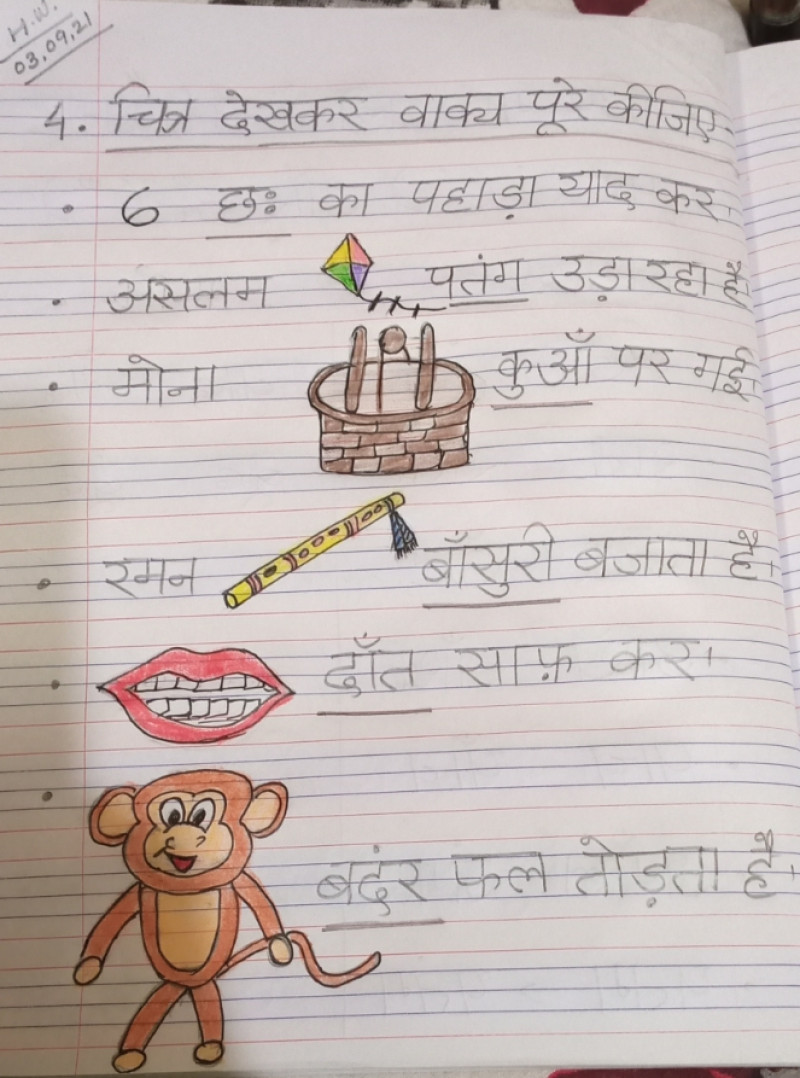 H.W.
03.09.21
4. चित्र देखकर वाक्य पूरे कीजिए-
• 6 छः का पहाड़ा याद कर।
• असलम पतंग उड़ा रहा है।
• मोना कुआँ पर गई।
• रमन बाँसुरी बजाता है।
• दाँत साफ़ कर।
• बदंर फल तोड़ता है।